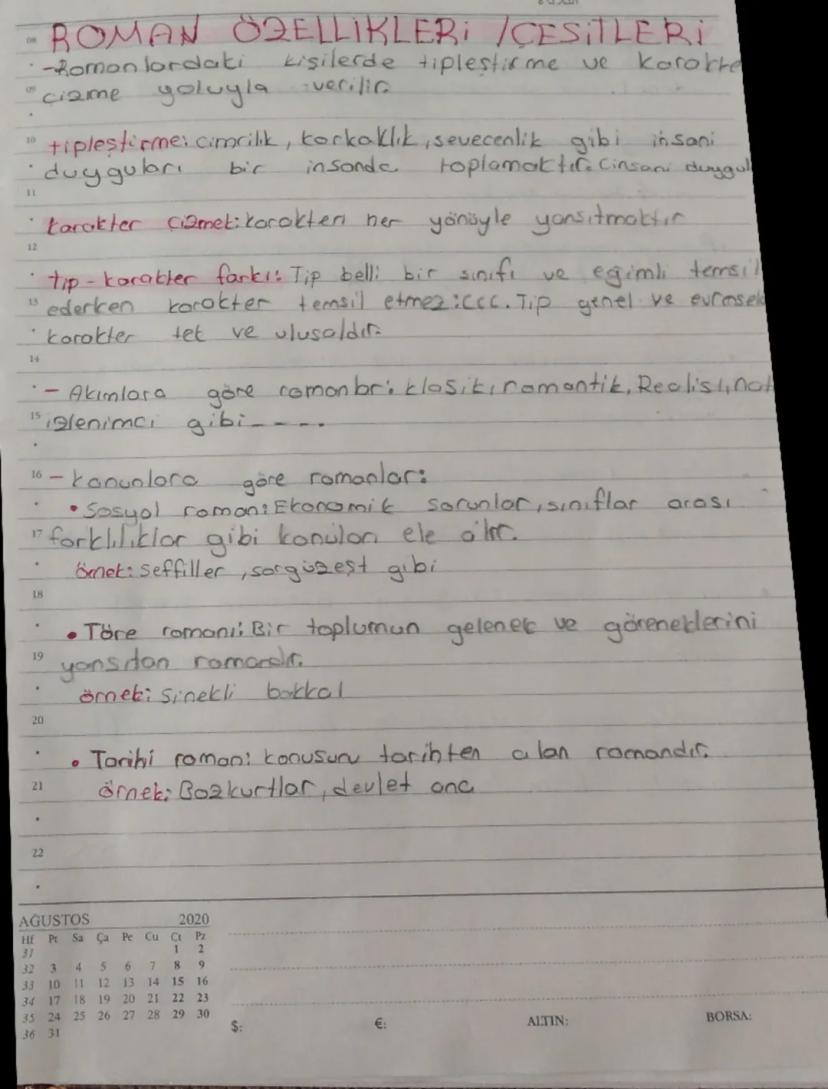 ROMAN ÖZELLİKLERİ / ÇEŞİTLERİ
08
-Romanlardaki kişilerde tipleştirme ve karakte
09 çizme yoluyla verilir.
10 tipleştirme: cimrilik, korkaklık, sevecenlik gibi insani
duyguları bir insanda toplamaktır. (insani duygul
11
karakter çizmek: karakteri her yönüyle yansıtmaktır
12
tip-karakter farkı: Tip belli bir sınıfı ve eğimli temsil
13 ederken karakter temsil etmez :ccc. Tip genel ve evrensel
karakter tek ve ulusaldır.
14
- Akımlara göre romanlar: klasik, romantik, Realist, nat
15 izlenimci gibi-----
16 - konunlara göre romanlar:
• Sosyal roman: Ekonomik sorunlar, sınıflar arası
17 farklılıklar gibi konuları ele alır.
örnek: seffiller, sergüzeşt gibi
18
• Töre romanı: Bir toplumun gelenek ve göreneklerini
19 yansıtan romandır.
örnek: sinekli bakkal
20
• Tarihi roman: konusunu tarihten alan romandır.
21 örnek: Bozkurtlar, devlet ana
22
AĞUSTOS 2020
Hf Pt Sa Ça Pe Cu Ct Pz
31 1 2
32 3 4 5 6 7 8 9
33 10 11 12 13 14 15 16
34 17 18 19 20 21 22 23
35 24 25 26 27 28 29 30
36 31
$: €: ALTIN: BORSA: